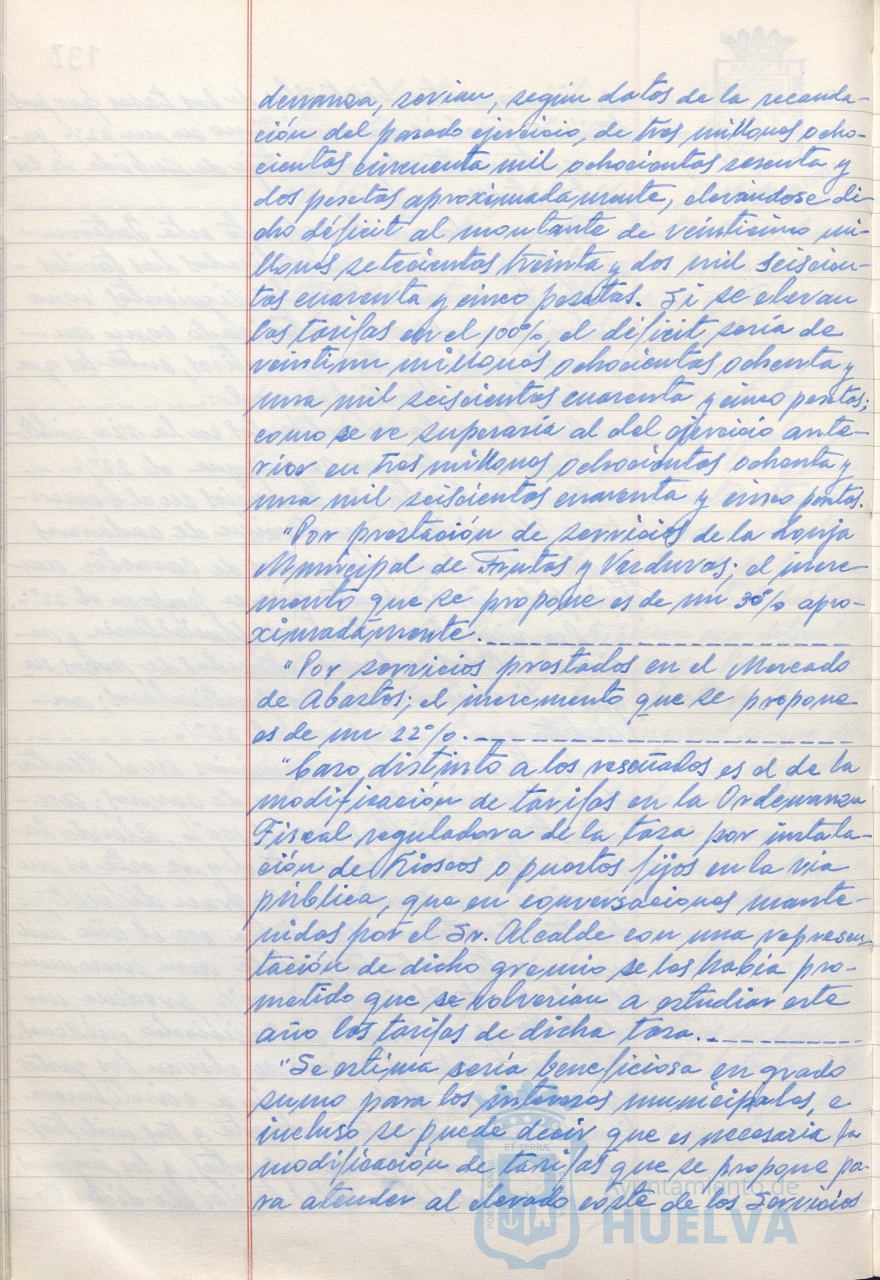 denanza, serian, según datos de la recauda-
ción del pasado ejercicio, de tres millones ocho-
cientas cincuenta mil ochocientas sesenta y
dos pesetas aproximadamente, elevándose di-
cho déficit al montante de veinticinco mi-
llones setecientas treinta y dos mil seiscien-
tas cuarenta y cinco pesetas. Si se elevan
las tarifas en el 100%, el déficit sería de
veintiun millones ochocientas ochenta y
una mil seiscientas cuarenta y cinco pesetas;
como se ve superaría al del ejercicio ante-
rior en tres millones ochocientas ochenta y
una mil seiscientas cuarenta y cinco pesetas.
"Por prestación de servicios de la Lonja
Municipal de Frutas y Verduras; el incre-
mento que se propone es de un 30% apro-
ximadamente.
"Por servicios prestados en el Mercado
de Abastos; el incremento que se propone
es de un 22%.
"Caso distinto a los reseñados es el de la
modificación de tarifas en la Ordenanza
Fiscal reguladora de la tasa por instala-
ción de Kioscos o puestos fijos en la via
pública, que en conversaciones mante-
nidas por el Sr. Alcalde con una represen-
tación de dicho gremio se les habia pro-
metido que se volverian a estudiar este
año las tarifas de dicha tasa.
"Se estima sería beneficiosa en grado
sumo para los intereses municipales, e
incluso se puede decir que es necesaria la
modificación de tarifas que se propone pa-
ra atender al elevado coste de los Servicios
Ayuntamiento de
HUELVA